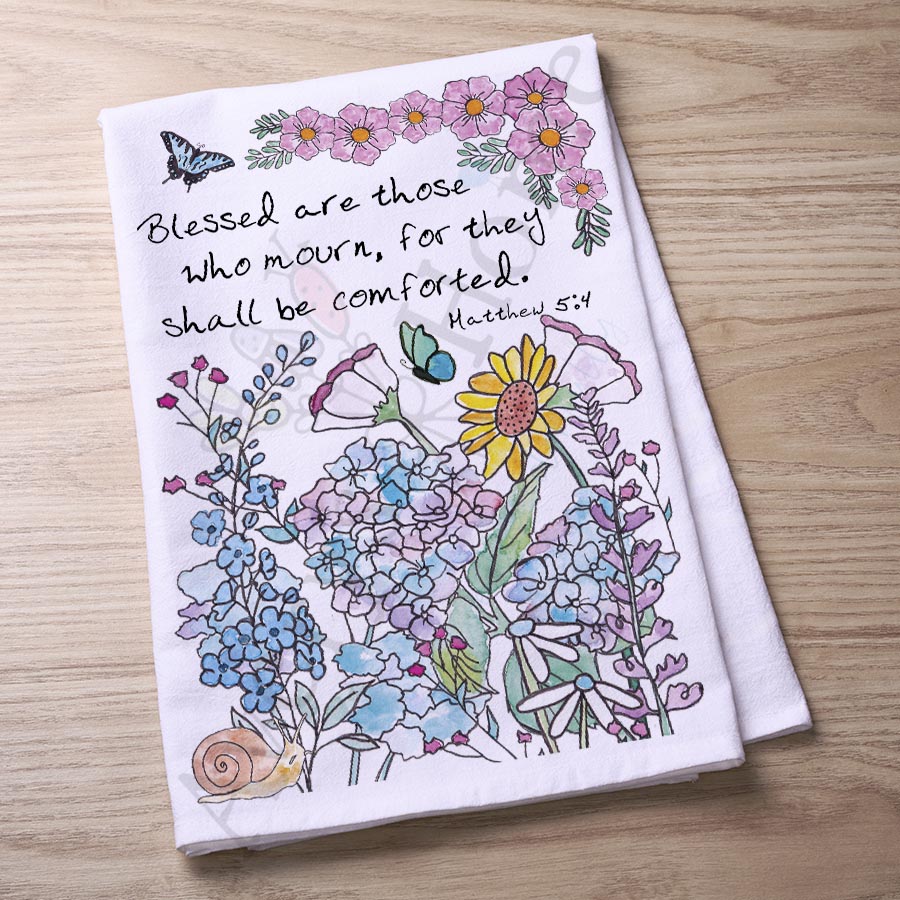 Blessed are those
who mourn, for they
shall be comforted.
Matthew 5:4